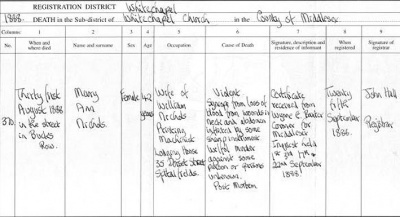 REGISTRATION DISTRICT Whitechapel
1888. DEATH in the Sub-district of Whitechapel Church in the County of Middlesex
Columns: 1 2 3 4 5 6 7 8 9
No. When and where died Name and surname Sex Age Occupation Cause of Death Signature, description and residence of informant When registered Signature of registrar
370
Thirty first
August 1888
in the street
in Bucks
Row.
Mary
Ann
Nichols
Female
42
years
Wife of
William
Nichols
Printing
Machinist
Lodging House
35 Dorset Street
Spitalfields.
Violent
Syncope from loss of
blood from wounds in
neck and abdomen
inflicted by some
sharp instrument
Wilful Murder
against some
person or persons
unknown.
Post Mortem
Certificate
received from
Wynne E Baxter
Coroner for
Middlesex
Inquest held
1st 3rd 17th &
22nd September
1888.
Twenty
fifth
September
1888.
John Hall
Registrar